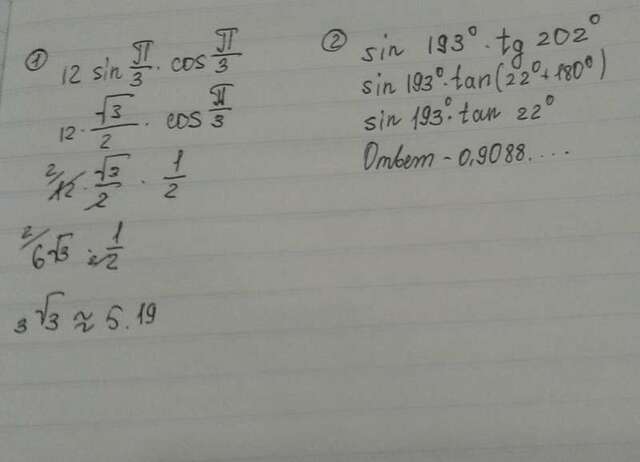 ① 12 sin π/3 · cos π/3
12 · √3/2 · cos π/3
2/12 · √3/2 · 1/2
2/6√3 · 1/2
3√3 ≈ 5.19
② sin 193° · tg 202°
sin 193° · tan(22° + 180°)
sin 193° · tan 22°
Ответ - 0,9088....